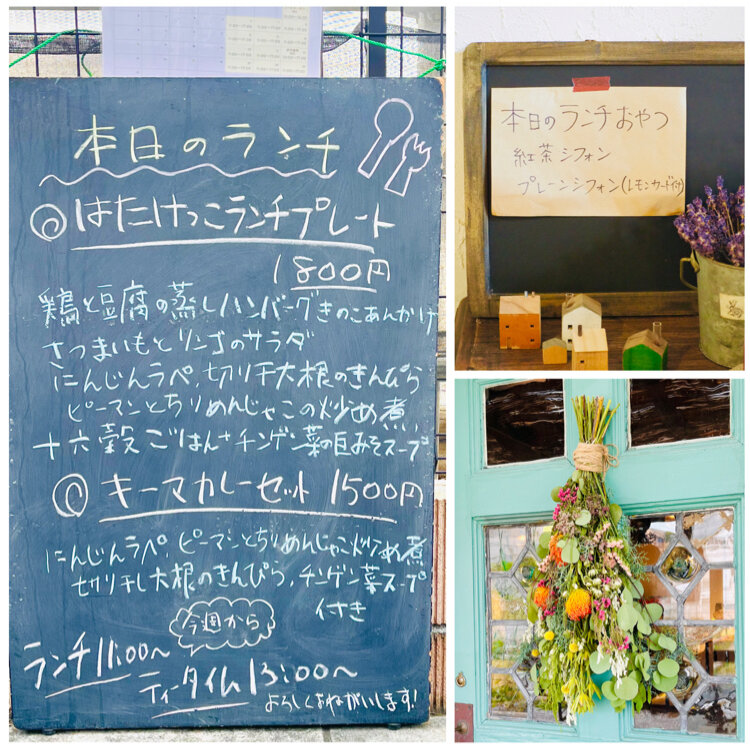 本日のランチ
◎はたけっこランチプレート
1800円
鶏と豆腐の蒸しハンバーグきのこあんかけ
さつまいもとリンゴのサラダ
にんじんラペ、切り干大根のきんぴら
ピーマンとちりめんじゃこの炒め煮
十六穀ごはん+チンゲン菜の白みそスープ
◎キーマカレーセット 1500円
にんじんラペ、ピーマンとちりめんじゃこ炒め煮
切り干し大根のきんぴら、チンゲン菜スープ
付き
今週から
ランチ11:00〜
ティータイム13:00〜
よろしくおねがいします!
本日のランチおやつ
紅茶シフォン
プレーンシフォン(レモンカード付)